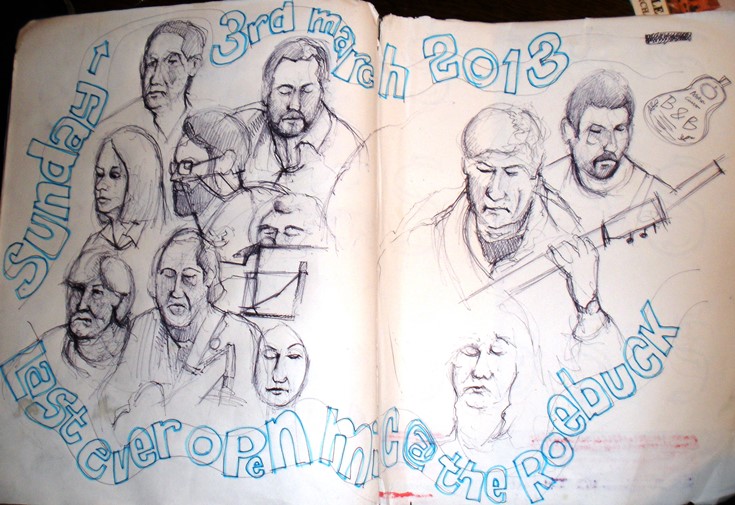 Sunday → 3rd march 2013
B&B
Last ever open mic @ the Roebuck